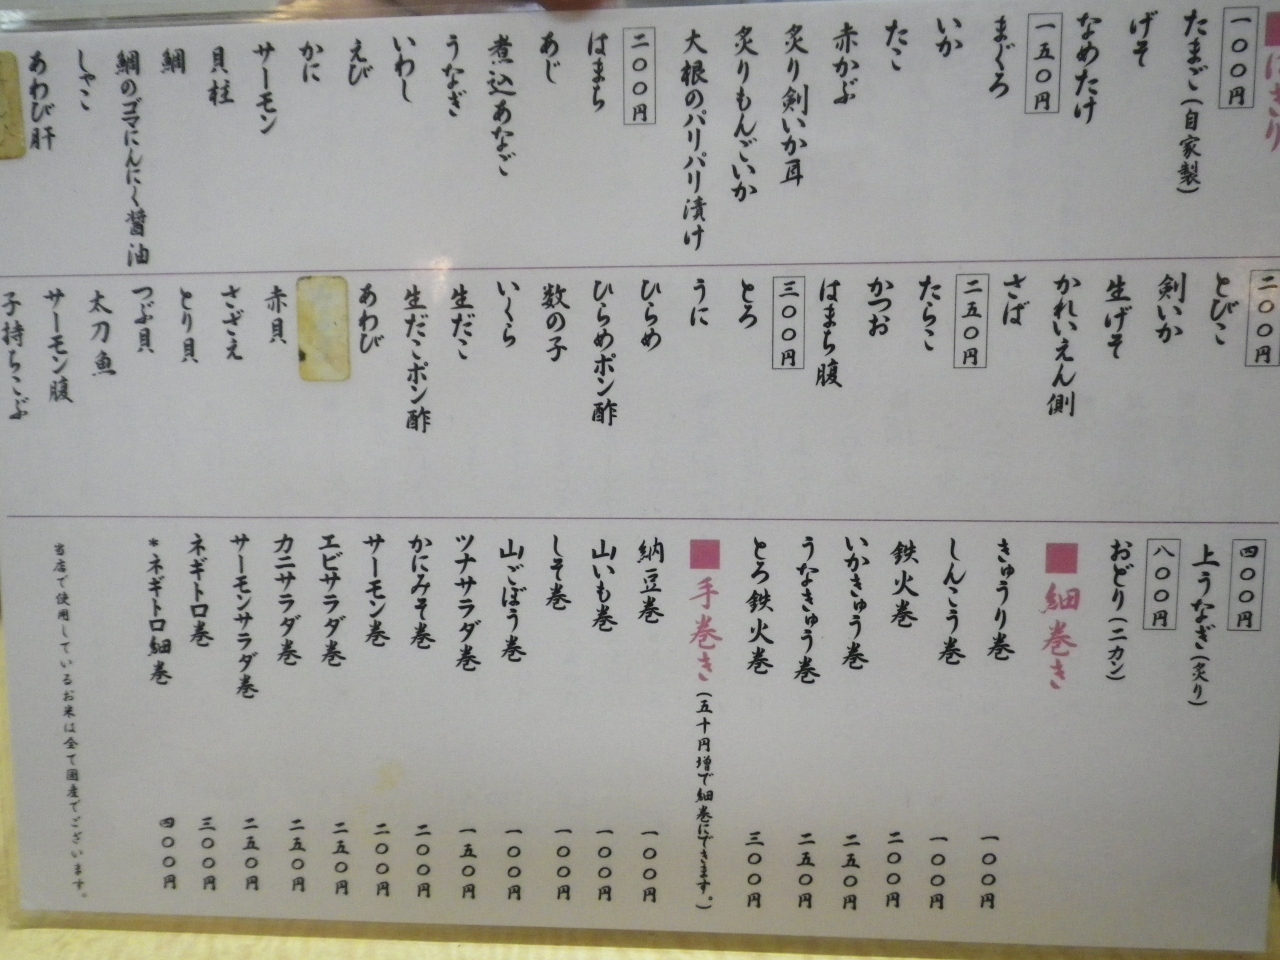 にぎり
一〇〇円
たまご(自家製)
げそ
なめたけ
一五〇円
まぐろ
いか
たこ
赤かぶ
炙り剣いか耳
炙りもんごいか
大根のパリパリ漬け
二〇〇円
はまち
あじ
煮込あなご
うなぎ
いわし
えび
かに
サーモン
貝柱
鯛
鯛のゴマにんにく醤油
しゃこ
あわび肝
二〇〇円
とびこ
剣いか
生げそ
かれいえん側
さば
二五〇円
たらこ
かつお
はまち腹
三〇〇円
とろ
うに
ひらめ
ひらめポン酢
数の子
いくら
生だこ
生だこポン酢
あわび
赤貝
さざえ
とり貝
つぶ貝
太刀魚
サーモン腹
子持ちこぶ
四〇〇円
上うなぎ(炙り)
八〇〇円
おどり(二カン)
■細巻き
きゅうり巻 一〇〇円
しんこう巻 一〇〇円
鉄火巻 二〇〇円
いかきゅう巻 二五〇円
うなきゅう巻 二五〇円
とろ鉄火巻 三〇〇円
■手巻き(五十円増で細巻にできます。)
納豆巻 一〇〇円
山いも巻 一〇〇円
しそ巻 一〇〇円
山ごぼう巻 一〇〇円
ツナサラダ巻 一五〇円
かにみそ巻 二〇〇円
サーモン巻 二〇〇円
エビサラダ巻 二五〇円
カニサラダ巻 二五〇円
サーモンサラダ巻 二五〇円
ネギトロ巻 三〇〇円
*ネギトロ細巻 四〇〇円
当店で使用しているお米は全て国産でございます。